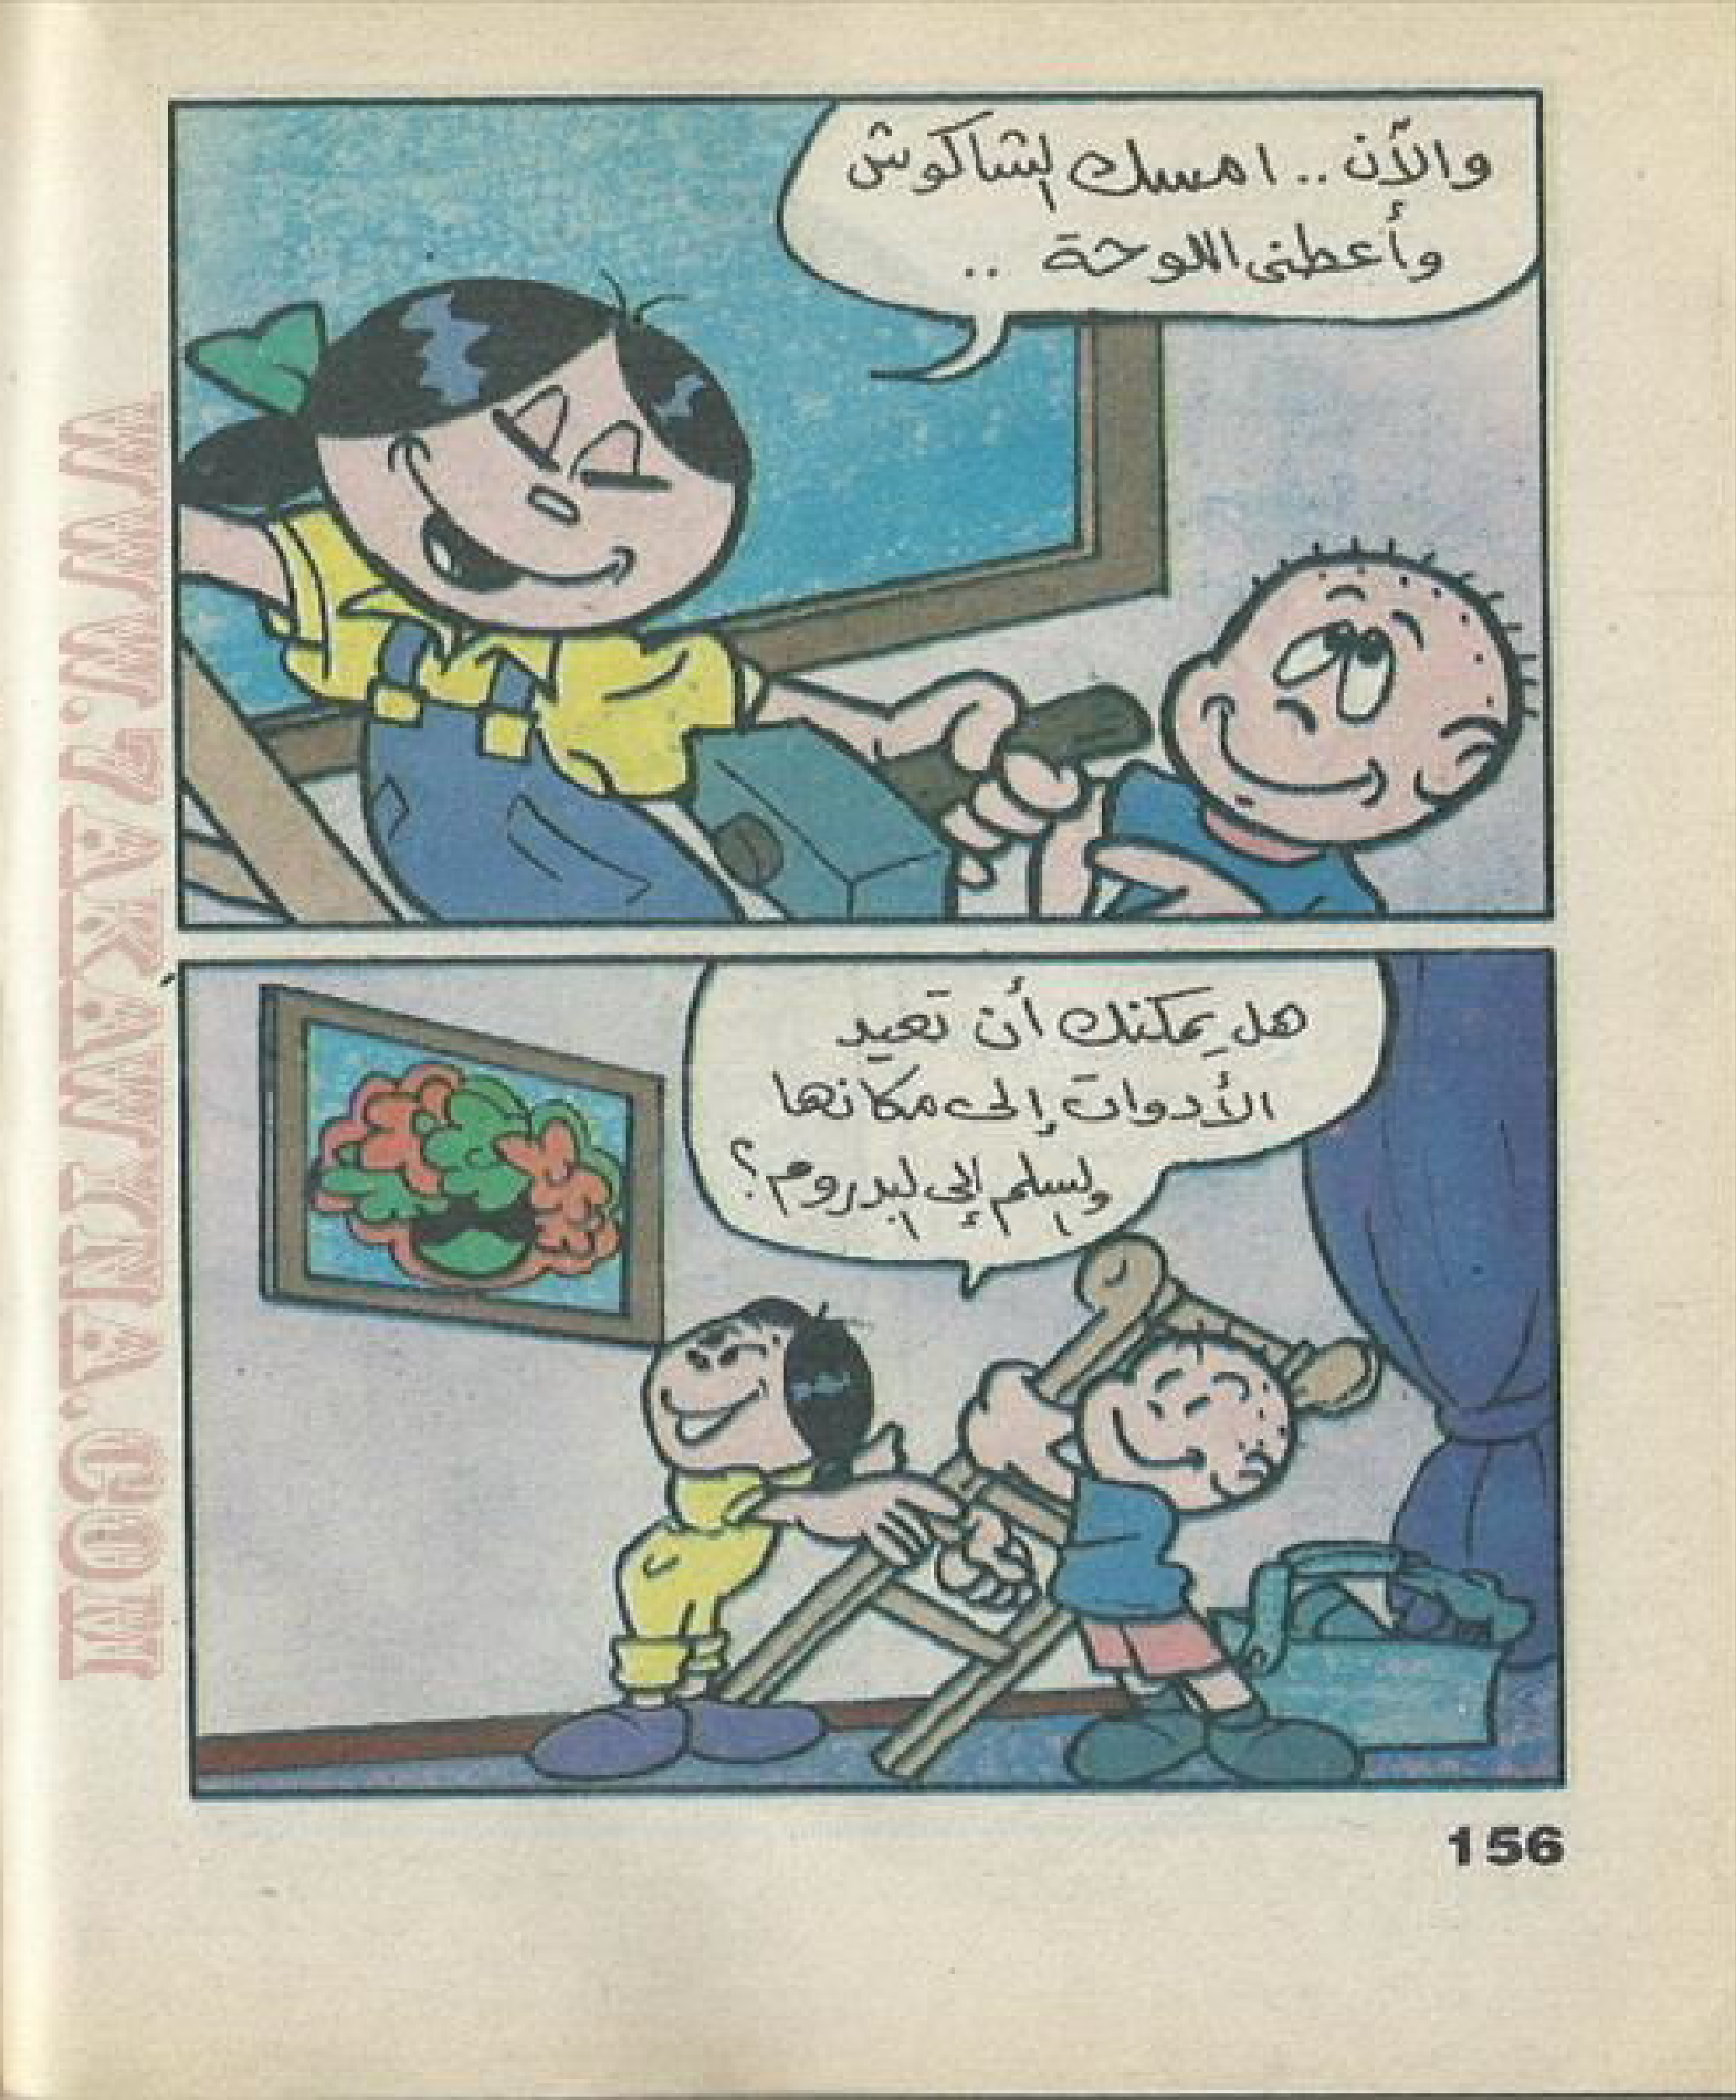 والآن .. امسك الشاكوش
وأعطنى اللوحة ..
هل يمكنك أن تعيد
الأدوات إلى مكانها
والسلم إلى البدروم ؟
156
WWW.7AKAWTNA.COM